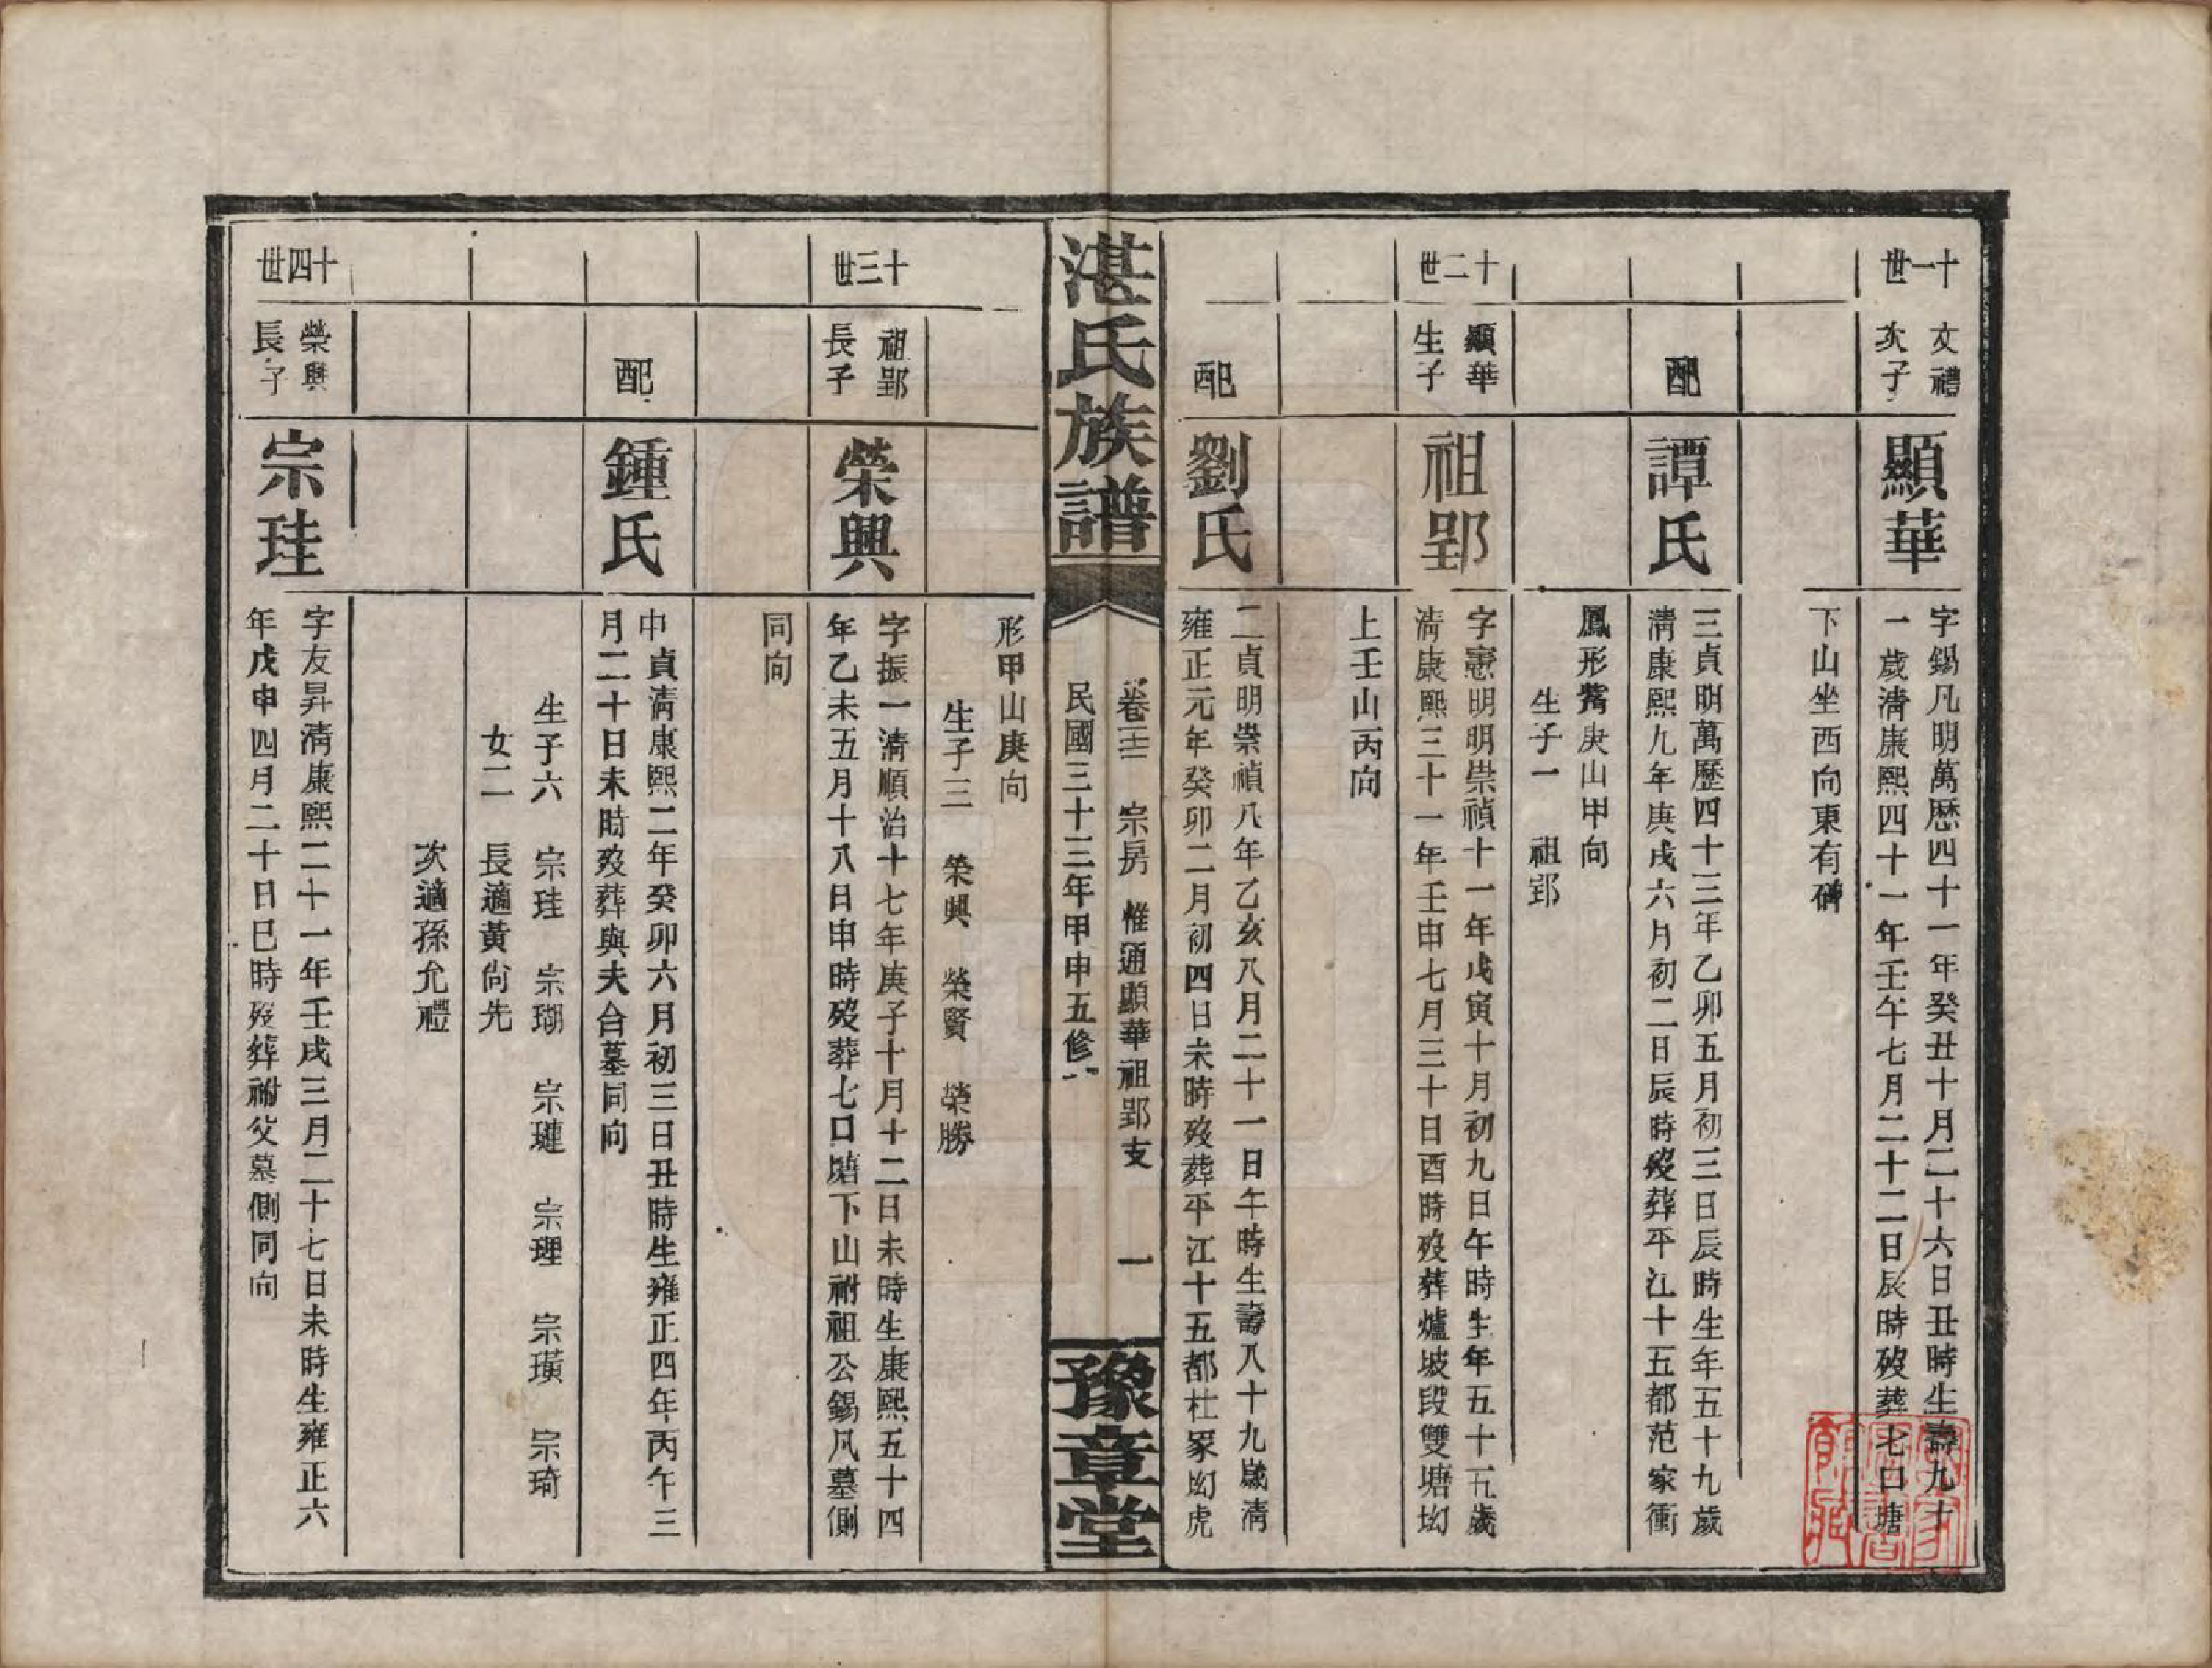 十一世
文禮
次子
顯華
字錫凡明萬歷四十一年癸丑十月二十六日丑時生壽九十
一歲淸康熙四十一年壬午七月二十二日辰時歿葬七口塘
下山坐西向東有碑
配
譚氏
三貞明萬歷四十三年乙卯五月初三日辰時生年五十九歲
淸康熙九年庚戌六月初二日辰時歿葬平江十五都范家衝
鳳形嘴庚山甲向
生子一　祖郢
十二世
顯華
生子
祖郢
字憲明明崇禎十一年戊寅十月初九日午時生年五十五歲
淸康熙三十一年壬申七月三十日酉時歿葬爐坡段雙塘㘭
上壬山丙向
配
劉氏
二貞明崇禎八年乙亥八月二十一日午時生壽八十九歲淸
雍正元年癸卯二月初四日未時歿葬平江十五都杜家㘭虎
湛氏族譜
卷三　宗房　惟通顯華祖郢支　一
民國三十三年甲申五修
豫章堂
形甲山庚向
生子三　榮興　榮賢　榮勝
十三世
祖郢
長子
榮興
字振一淸順治十七年庚子十月十二日未時生康熙五十四
年乙未五月十八日申時歿葬七口塘下山祔祖公錫凡墓側
同向
配
鍾氏
中貞淸康熙二年癸卯六月初三日丑時生雍正四年丙午三
月二十日未時歿葬與夫合墓同向
生子六　宗珪　宗瑚　宗璉　宗理　宗璜　宗琦
女二　長適黃尙先
次適孫允禮
十四世
榮興
長子
宗珪
字友昇淸康熙二十一年壬戌三月二十七日未時生雍正六
年戊申四月二十日巳時歿葬祔父墓側同向